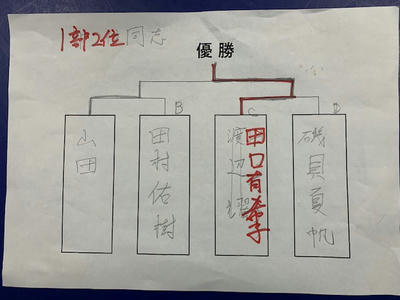 1部2位同志
優勝
B
C
D
山田
田村佑樹
渡辺
田口有希子
磯貝夏帆